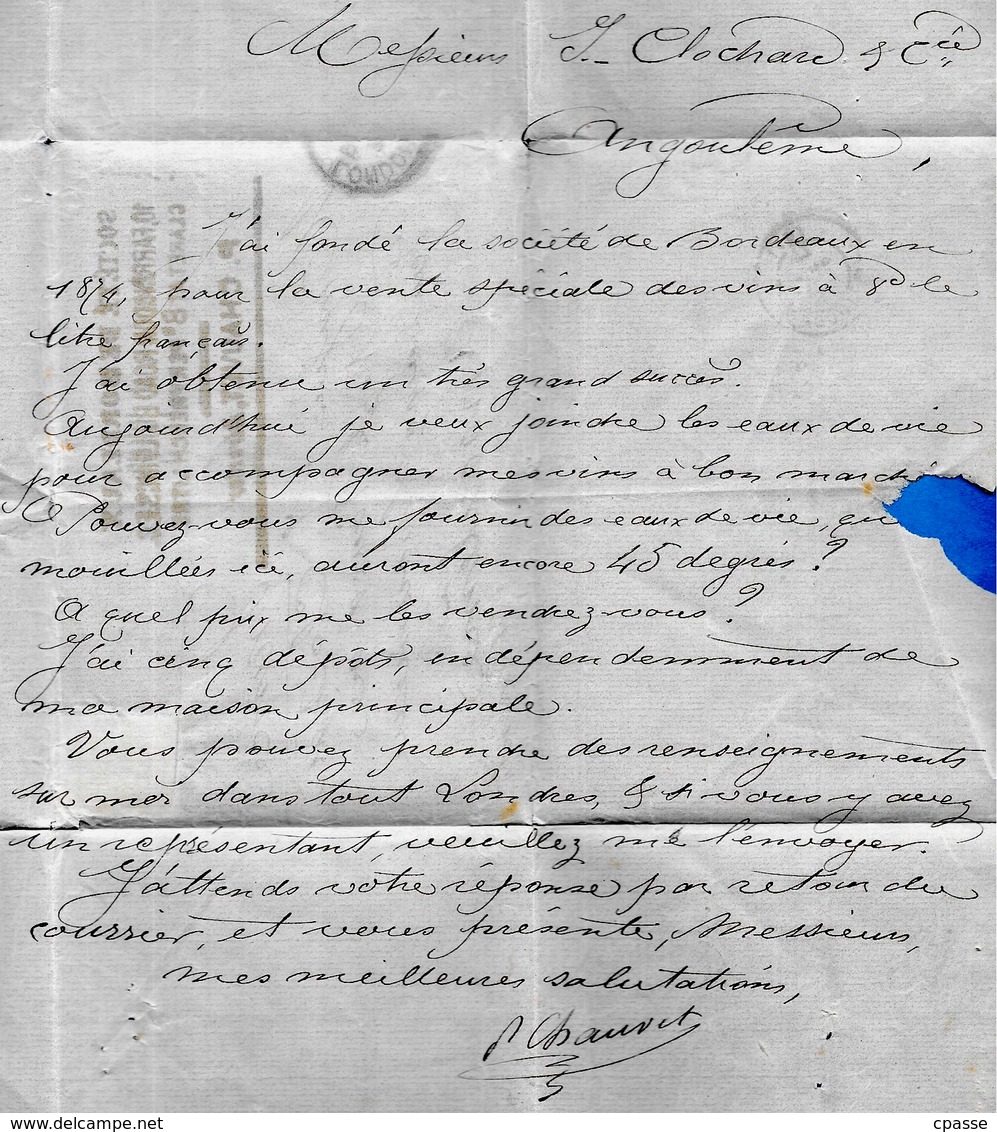 Messieurs J. Clochard & Cie
Angoulême,
J'ai fondé la société de Bordeaux en
1874, pour la vente spéciale des vins à 8d le
litre français.
J'ai obtenu un très grand succès.
Aujourd'hui je veux joindre les eaux de vie
pour accompagner mes vins à bon march
Pouvez-vous me fournir des eaux de vie, qu
mouillées ici, auront encore 45 degrés ?
A quel prix me les vendrez-vous ?
J'ai cinq dépôts, indépendemment de
ma maison principale.
Vous pouvez prendre des renseignements
sur moi dans tout Londres, & si vous y avez
un représentant, veuillez me l'envoyer.
J'attends votre réponse par retour du
courrier, et vous présente, Messieurs,
mes meilleures salutations,
P Chauvet
www.delcampe.net
cpasse